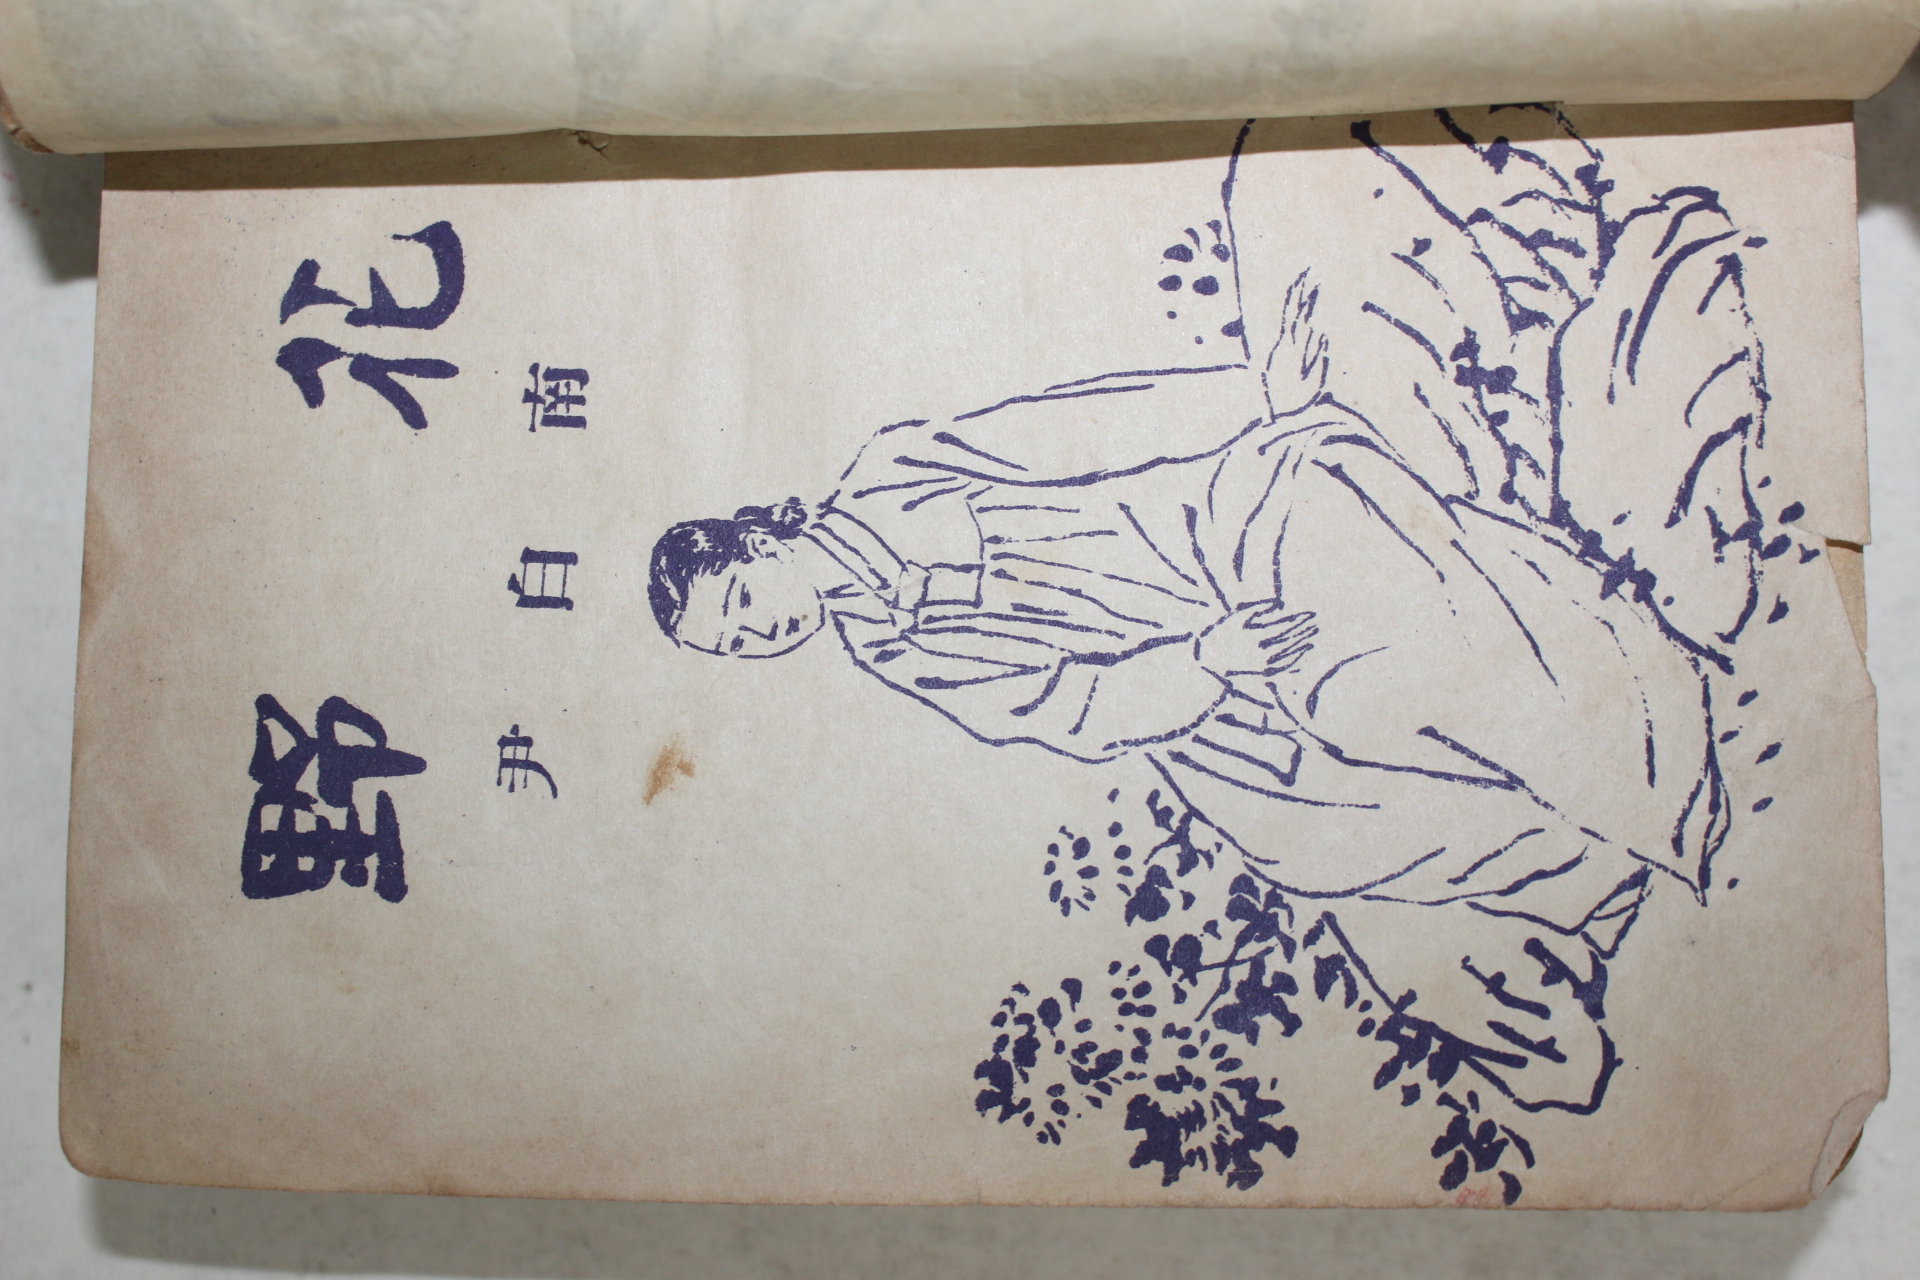 野花
尹白南